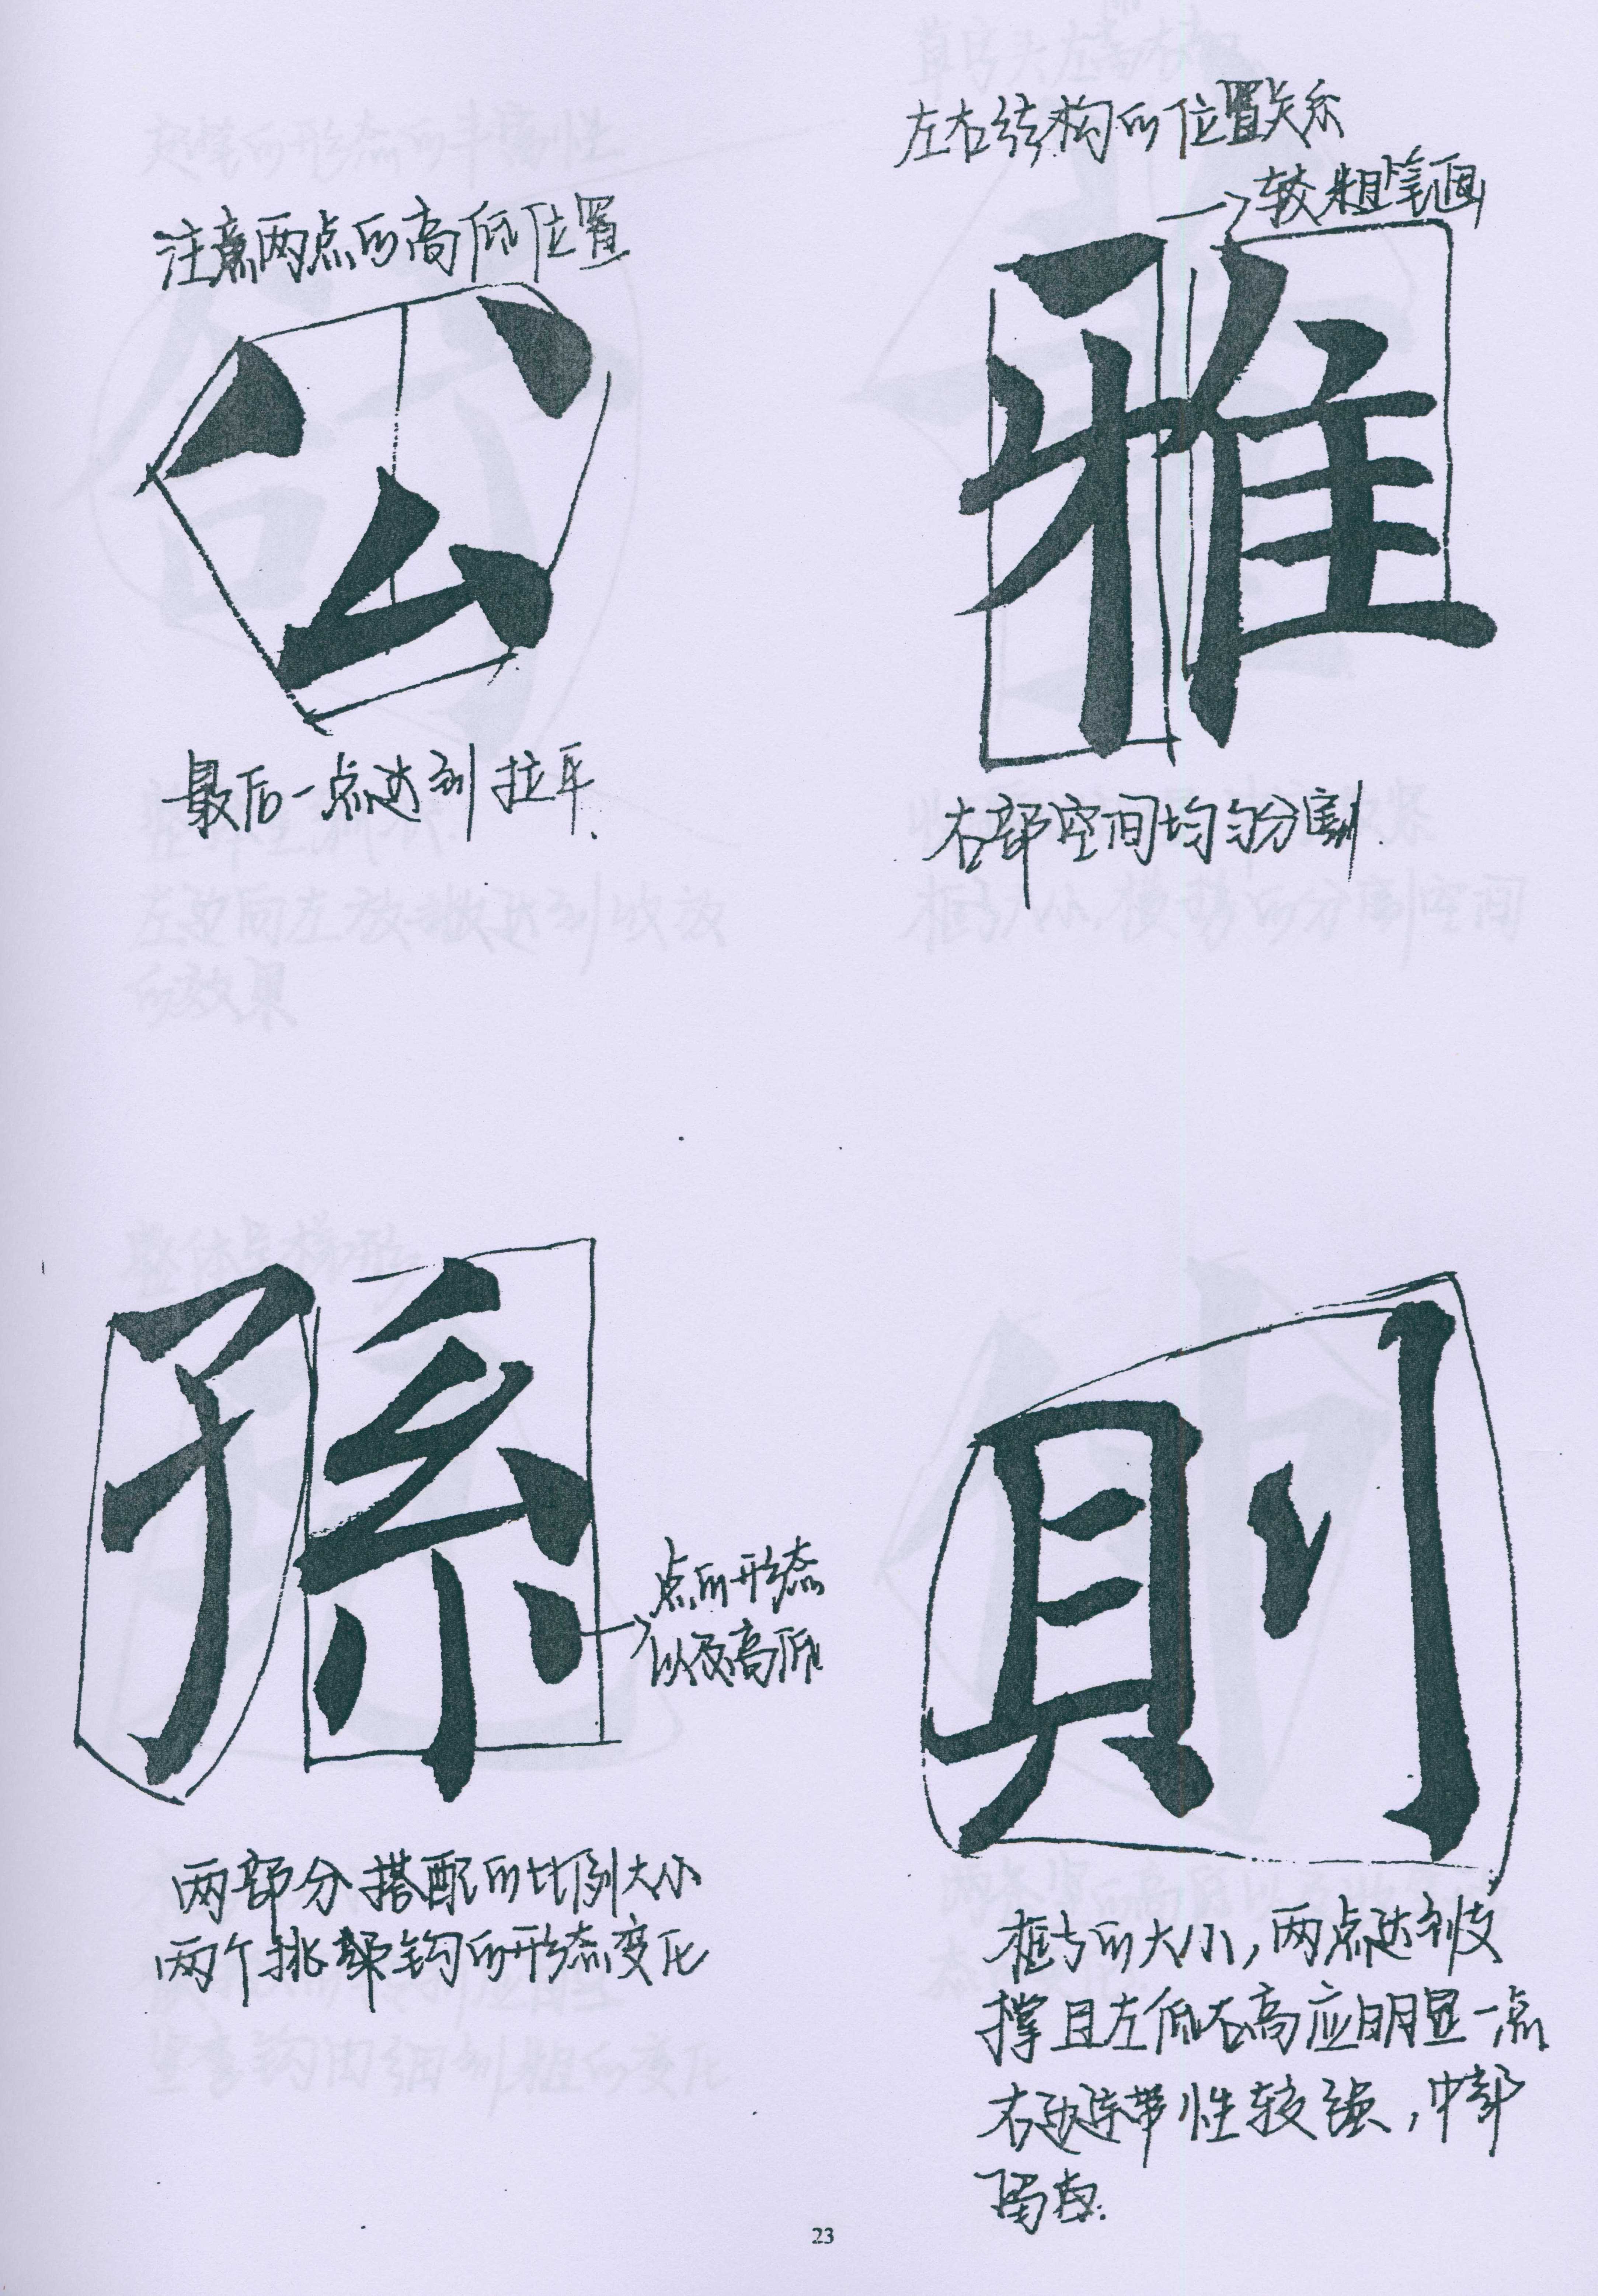 注意两点的高低位置
公
最后一点达到拉平.
左右结构的位置关系
→较粗笔画
雅
右部空间均匀分割.
孫
→点的形态
以及高低
两部分搭配的比例大小
两个挑钩的形态变化
則
框与的大小,两点达到支
撑且左低右高应明显一点
右边连带性较强,中部
留白.
23